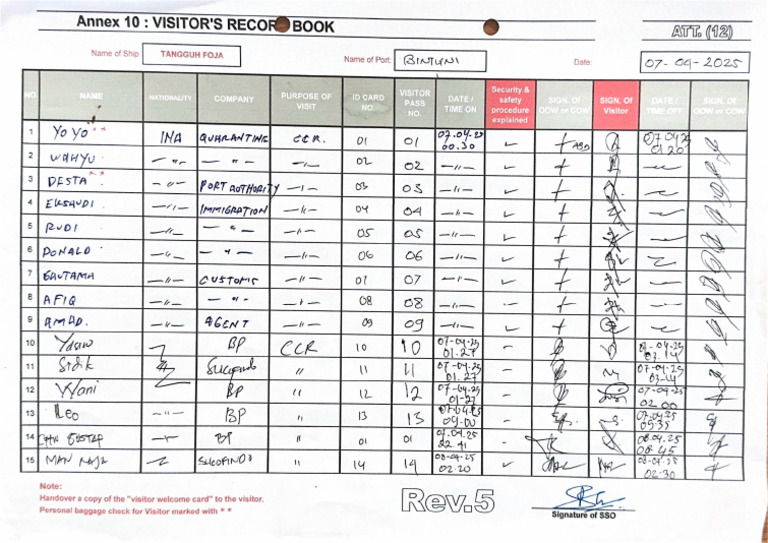 Annex 10 : VISITOR'S RECORD BOOK ATT. (12)
Name of Ship: TANGGUH FOJA Name of Port: BINTUNI Date: 07-04-2025
NO. NAME NATIONALITY COMPANY PURPOSE OF VISIT ID CARD NO. VISITOR PASS NO. DATE / TIME ON Security & safety procedure explained SIGN. OF OOW or COW SIGN. Of Visitor DATE / TIME OFF SIGN. OF OOW or COW
1 YOYO ** INA QUARANTINE CCR. 01 01 07.04.25 00.30 ✓ 07.04.25 01.20
2 WAHYU — " — — " — — " — 02 02 — " — ✓
3 DESTA ** — " — PORT AUTHORITY — " — 03 03 — " — ✓
4 — " — IMMIGRATION — " — 04 04 — " — ✓
5 RUDI — " — — " — — " — 05 05 — " — ✓
6 DONALD — " — — " — — " — 06 06 — " — ✓
7 GAUTAMA — " — CUSTOMS — " — 07 07 — " — ✓
8 AFIQ — " — — " — — " — 08 08 — " —
9 AMAD. — " — AGENT — " — 09 09 — " — ✓
10 BP CCR 10 10 07-04-25 01.27 03.14
11 Sidik SUCOFINDO " 11 11 07-04-25 01.27 07-04-25 03-14
12 BP " 12 12 07-04-25 01-27 07-04-25 02 00
13 LEO — " — BP " 13 13 07.04.25 09-00 07.04.25 09.35
14 BP " 01 01 07.04.25 22 41 ✓ 08.04.25 08.45
15 MAN SUCOFINDO " 14 14 08-04-25 02.20 ✓ 02-30
Note:
Handover a copy of the "visitor welcome card" to the visitor.
Personal baggage check for Visitor marked with * *
Rev.5
Signature of SSO